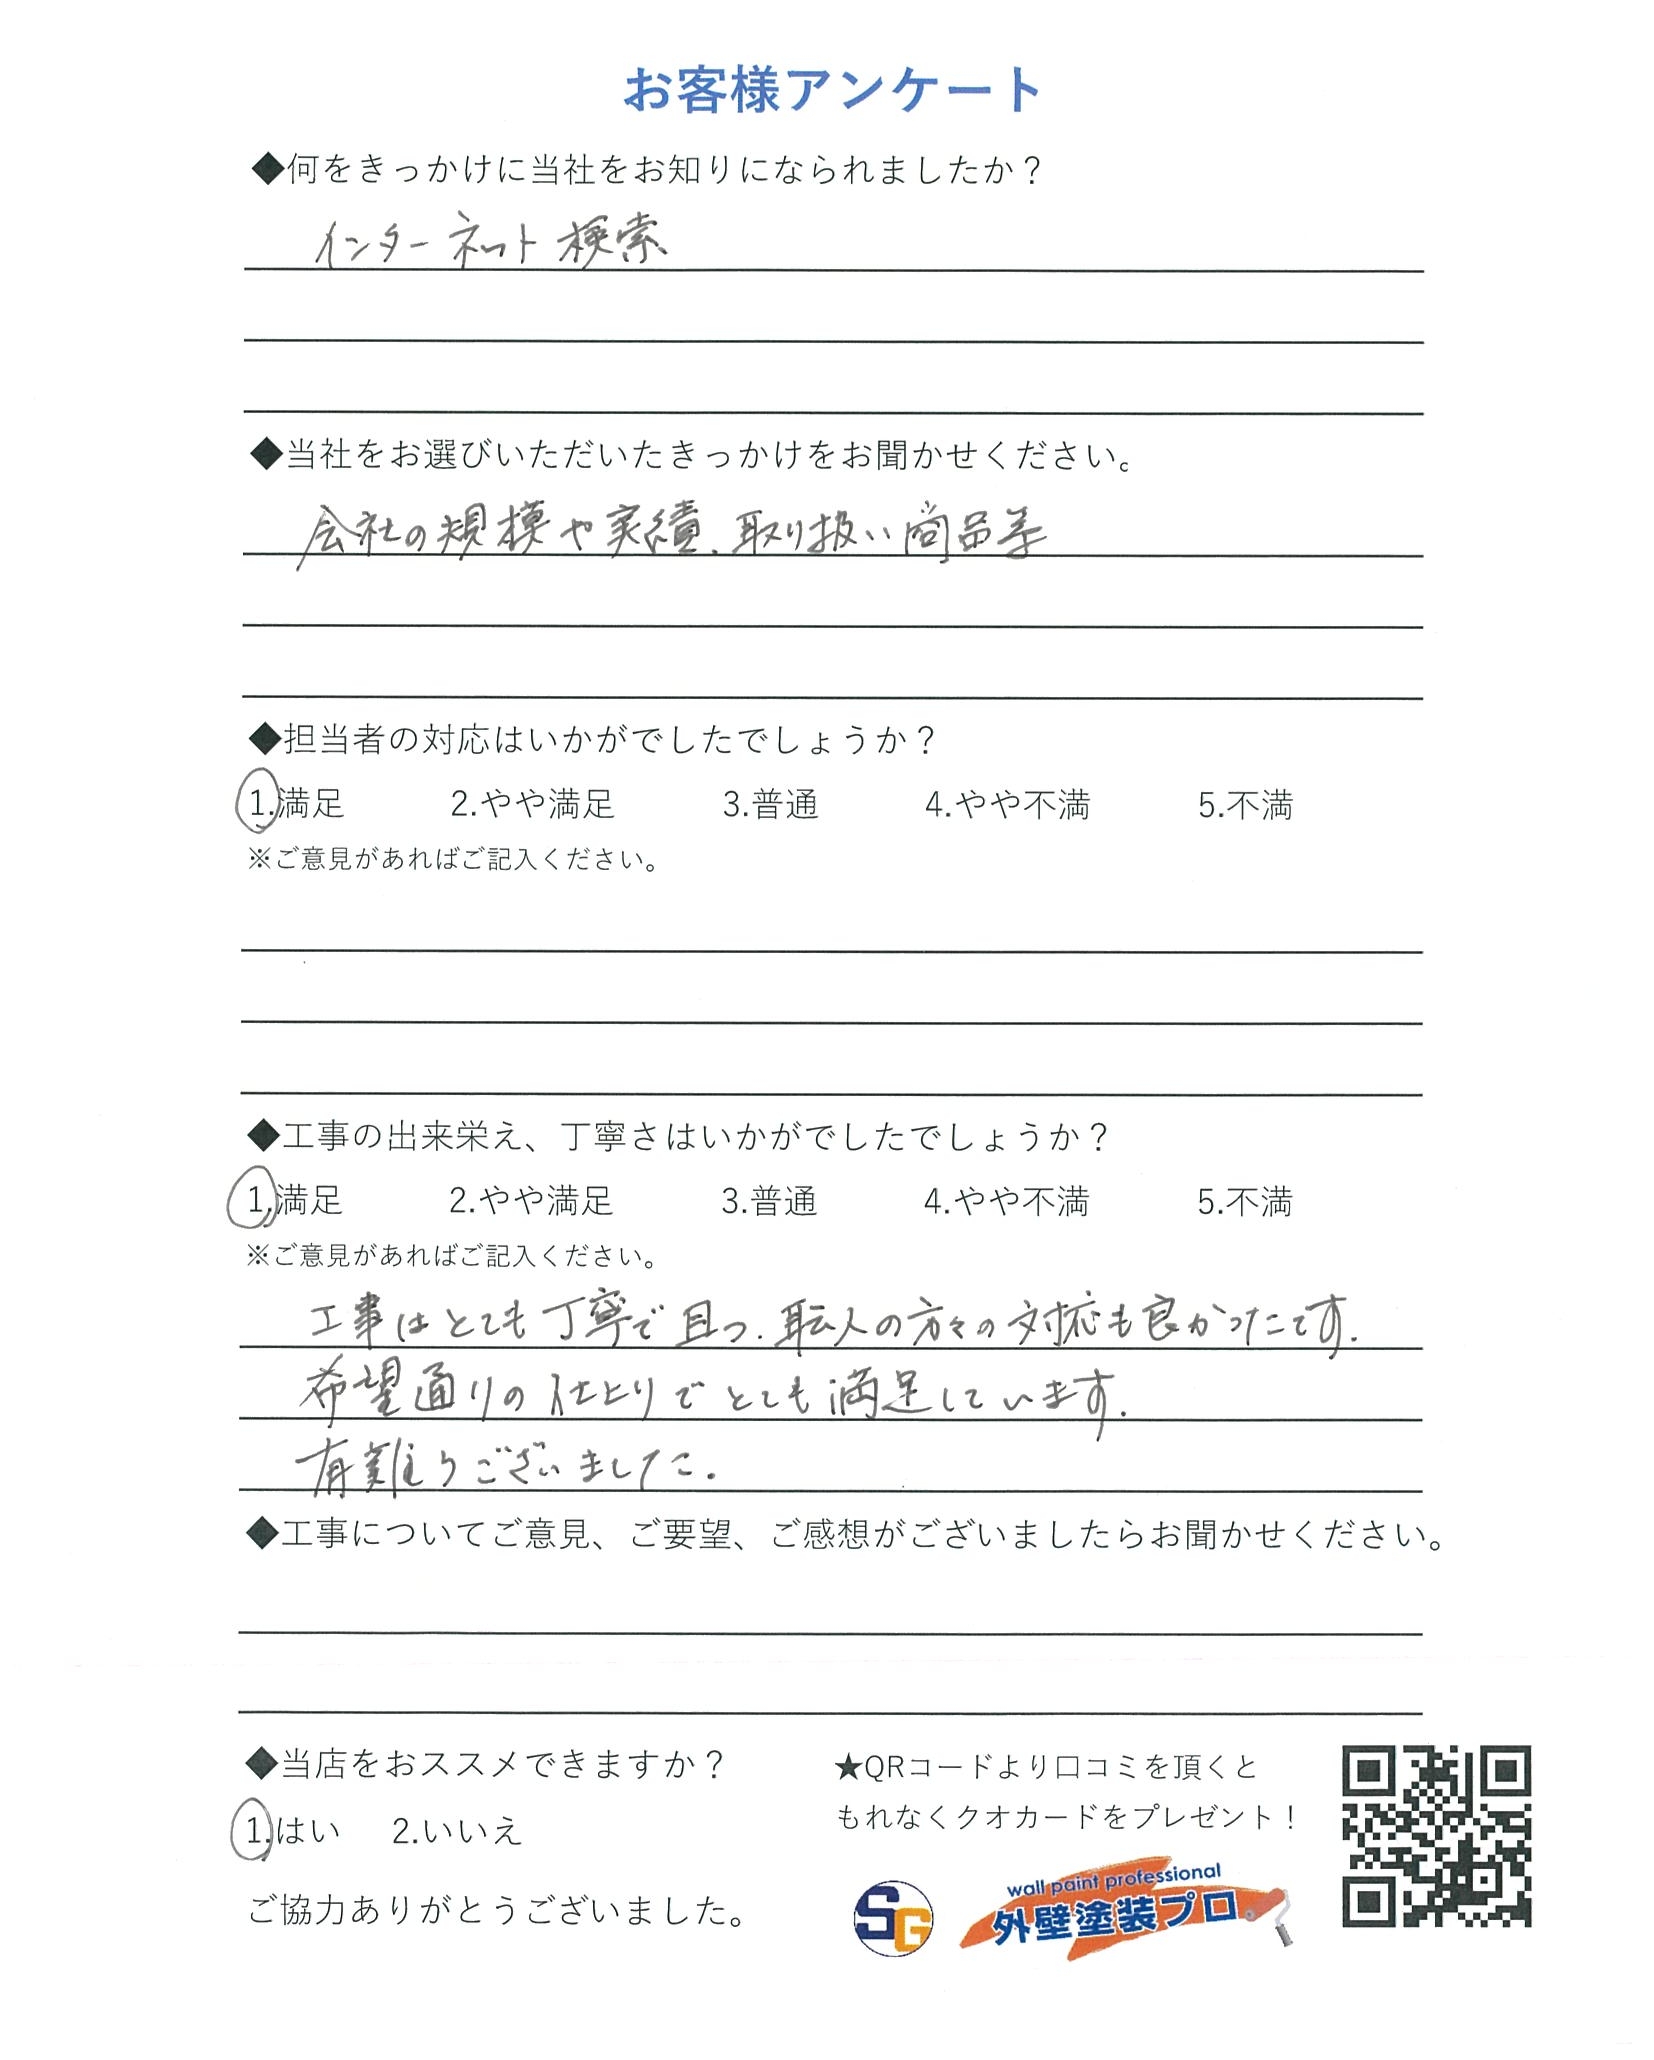 お客様アンケート
◆何をきっかけに当社をお知りになられましたか？
インターネット検索
◆当社をお選びいただいたきっかけをお聞かせください。
会社の規模や実績、取り扱い商品等
◆担当者の対応はいかがでしたでしょうか？
1.満足 2.やや満足 3.普通 4.やや不満 5.不満
※ご意見があればご記入ください。
◆工事の出来栄え、丁寧さはいかがでしたでしょうか？
1.満足 2.やや満足 3.普通 4.やや不満 5.不満
※ご意見があればご記入ください。
工事はとても丁寧で且つ、職人の方々の対応も良かったです。
希望通りの仕上りでとても満足しています。
有難うございました。
◆工事についてご意見、ご要望、ご感想がございましたらお聞かせください。
◆当店をおススメできますか？
1.はい 2.いいえ
ご協力ありがとうございました。
★QRコードより口コミを頂くと
もれなくクオカードをプレゼント！
SG
wall paint professional
外壁塗装プロ